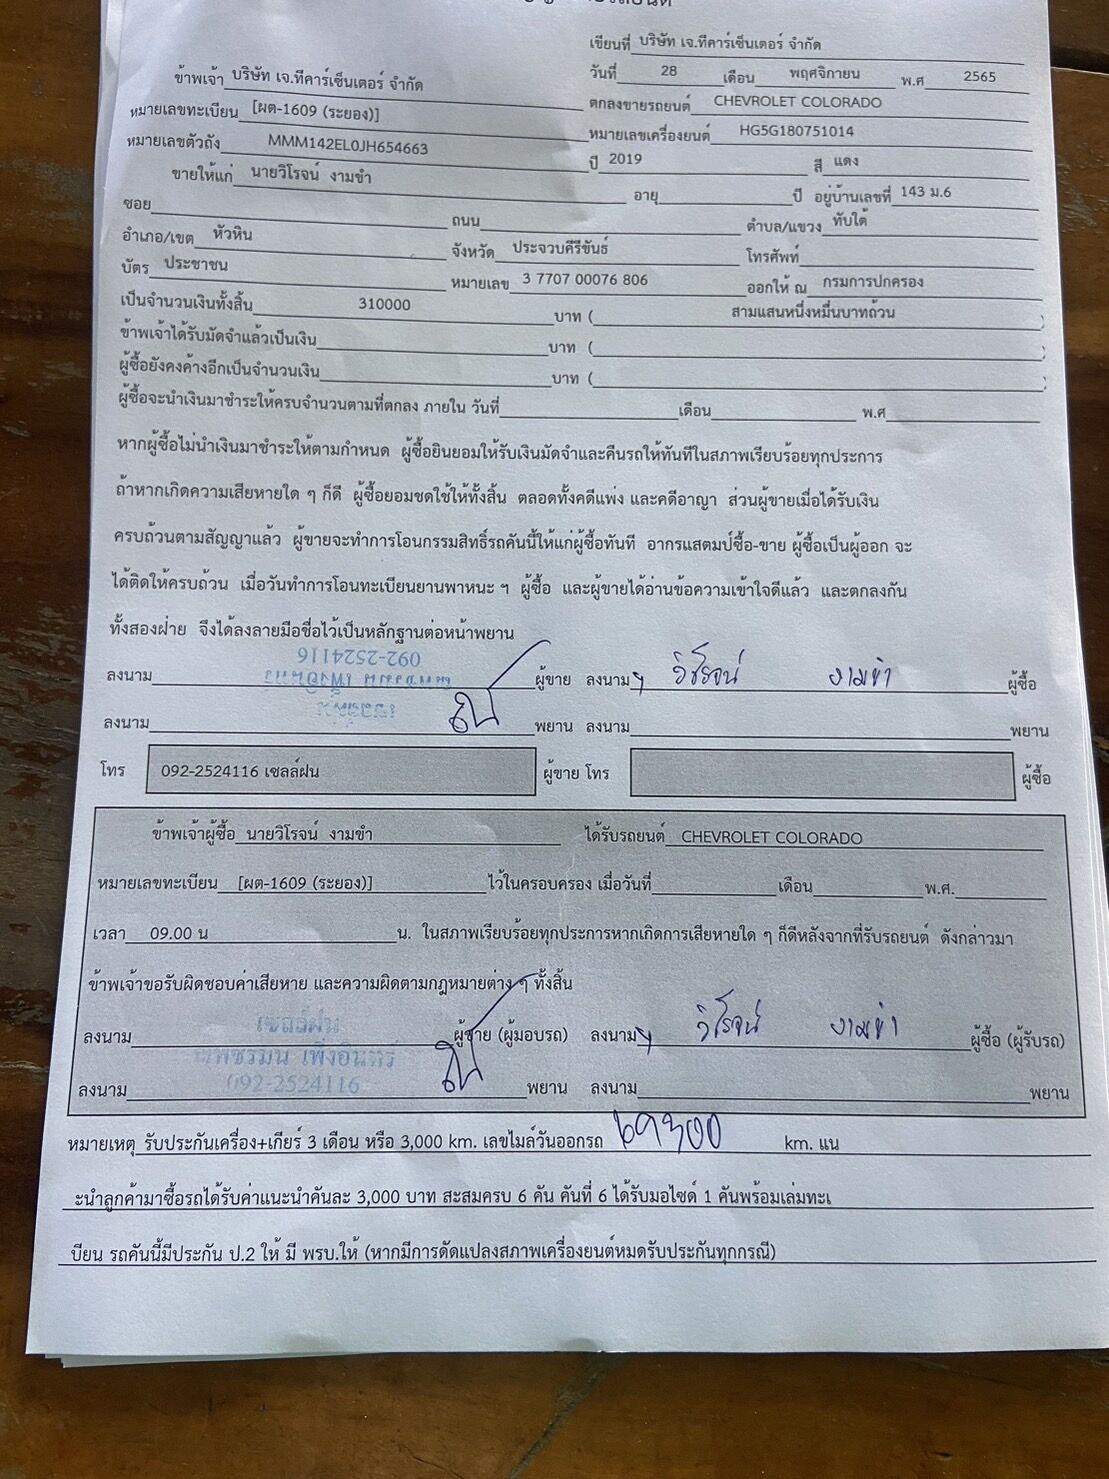 เขียนที่ บริษัท เจ.ทีคาร์เซ็นเตอร์ จำกัด
ข้าพเจ้า บริษัท เจ.ทีคาร์เซ็นเตอร์ จำกัด วันที่ 28 เดือน พฤศจิกายน พ.ศ 2565
หมายเลขทะเบียน [ผต-1609 (ระยอง)] ตกลงขายรถยนต์ CHEVROLET COLORADO
หมายเลขตัวถัง MMM142EL0JH654663 หมายเลขเครื่องยนต์ HG5G180751014
ปี 2019 สี แดง
ขายให้แก่ นายวิโรจน์ งามขำ อายุ ปี อยู่บ้านเลขที่ 143 ม.6
ซอย ถนน ตำบล/แขวง ทับใต้
อำเภอ/เขต หัวหิน จังหวัด ประจวบคีรีขันธ์ โทรศัพท์
บัตร ประชาชน หมายเลข 3 7707 00076 806 ออกให้ ณ กรมการปกครอง
เป็นจำนวนเงินทั้งสิ้น 310000 บาท ( สามแสนหนึ่งหมื่นบาทถ้วน )
ข้าพเจ้าได้รับมัดจำแล้วเป็นเงิน บาท ( )
ผู้ซื้อยังคงค้างอีกเป็นจำนวนเงิน บาท ( )
ผู้ซื้อจะนำเงินมาชำระให้ครบจำนวนตามที่ตกลง ภายใน วันที่ เดือน พ.ศ
หากผู้ซื้อไม่นำเงินมาชำระให้ตามกำหนด ผู้ซื้อยินยอมให้รับเงินมัดจำและคืนรถให้ทันทีในสภาพเรียบร้อยทุกประการ
ถ้าหากเกิดความเสียหายใด ๆ ก็ดี ผู้ซื้อยอมชดใช้ให้ทั้งสิ้น ตลอดทั้งคดีแพ่ง และคดีอาญา ส่วนผู้ขายเมื่อได้รับเงิน
ครบถ้วนตามสัญญาแล้ว ผู้ขายจะทำการโอนกรรมสิทธิ์รถคันนี้ให้แก่ผู้ซื้อทันที อากรแสตมป์ซื้อ-ขาย ผู้ซื้อเป็นผู้ออก จะ
ได้ติดให้ครบถ้วน เมื่อวันทำการโอนทะเบียนยานพาหนะ ฯ ผู้ซื้อ และผู้ขายได้อ่านข้อความเข้าใจดีแล้ว และตกลงกัน
ทั้งสองฝ่าย จึงได้ลงลายมือชื่อไว้เป็นหลักฐานต่อหน้าพยาน
092-2524116
ลงนาม ผู้ขาย ลงนาม วิโรจน์ งามขำ ผู้ซื้อ
ลงนาม พยาน ลงนาม พยาน
โทร 092-2524116 เซลล์ฝน ผู้ขาย โทร ผู้ซื้อ
ข้าพเจ้าผู้ซื้อ นายวิโรจน์ งามขำ ได้รับรถยนต์ CHEVROLET COLORADO
หมายเลขทะเบียน [ผต-1609 (ระยอง)] ไว้ในครอบครอง เมื่อวันที่ เดือน พ.ศ.
เวลา 09.00 น น. ในสภาพเรียบร้อยทุกประการหากเกิดการเสียหายใด ๆ ก็ดีหลังจากที่รับรถยนต์ ดังกล่าวมา
ข้าพเจ้าขอรับผิดชอบค่าเสียหาย และความผิดตามกฎหมายต่าง ๆ ทั้งสิ้น
เซลล์ฝน
ลงนาม ผู้ขาย (ผู้มอบรถ) ลงนาม วิโรจน์ งามขำ ผู้ซื้อ (ผู้รับรถ)
เพ็งอินทร์
092-2524116
ลงนาม พยาน ลงนาม พยาน
หมายเหตุ รับประกันเครื่อง+เกียร์ 3 เดือน หรือ 3,000 km. เลขไมล์วันออกรถ 69300 km. แน
ะนำลูกค้ามาซื้อรถได้รับค่าแนะนำคันละ 3,000 บาท สะสมครบ 6 คัน คันที่ 6 ได้รับมอไซด์ 1 คันพร้อมเล่มทะเ
บียน รถคันนี้มีประกัน ป.2 ให้ มี พรบ.ให้ (หากมีการดัดแปลงสภาพเครื่องยนต์หมดรับประกันทุกกรณี)